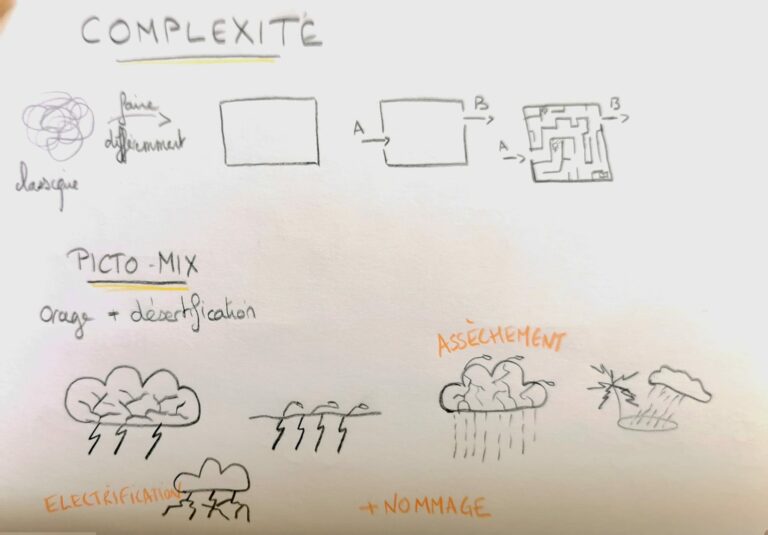 COMPLEXITÉ
faire
différemment
classique
A
B
A
B
PICTO-MIX
orage + désertification
ASSÈCHEMENT
ELECTRIFICATION
+ NOMMAGE